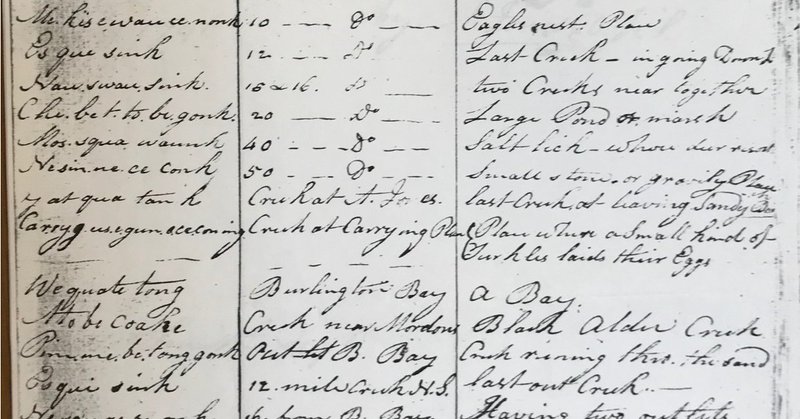 Me.hise.wau.ce.nonk 10 — — Do — — Eagles nest. Place
Es que sink 12. — — Do — — Last Creek — in going Down
Nau.swau.sink. 15 & 16. Do — — two Creeks near together
Che.be.t.to.be.gonk. 20 — — Do — — Large Pond or marsh
Mos.squa waunk 40 — — Do — — Salt lick — where deer resort
Nesin.ne.ce conk 50 — — Do — — Small stone. or gravily Place
Creek at A. last Creek, at leaving Sandy
Creek at Carrying Place Place where a Small kind of
— — — — Turkles laids their Eggs
We quate tong Burlington Bay a Bay.
Creek near Mordons Black Alder Creek
Out let B. Bay Creek runing thro. the sand
Es qui sink 12. mile Creek N.S. last out Creek. —
B. Bay Having two outlets